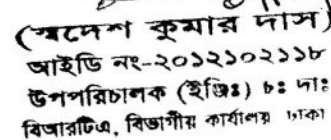 (স্বদেশ কুমার দাস)
আইডি নং-২০১২১০২১১৮
উপপরিচালক (ইঞ্জিঃ) চঃ দাঃ
বিআরটিএ, বিভাগীয় কার্যালয় ঢাকা